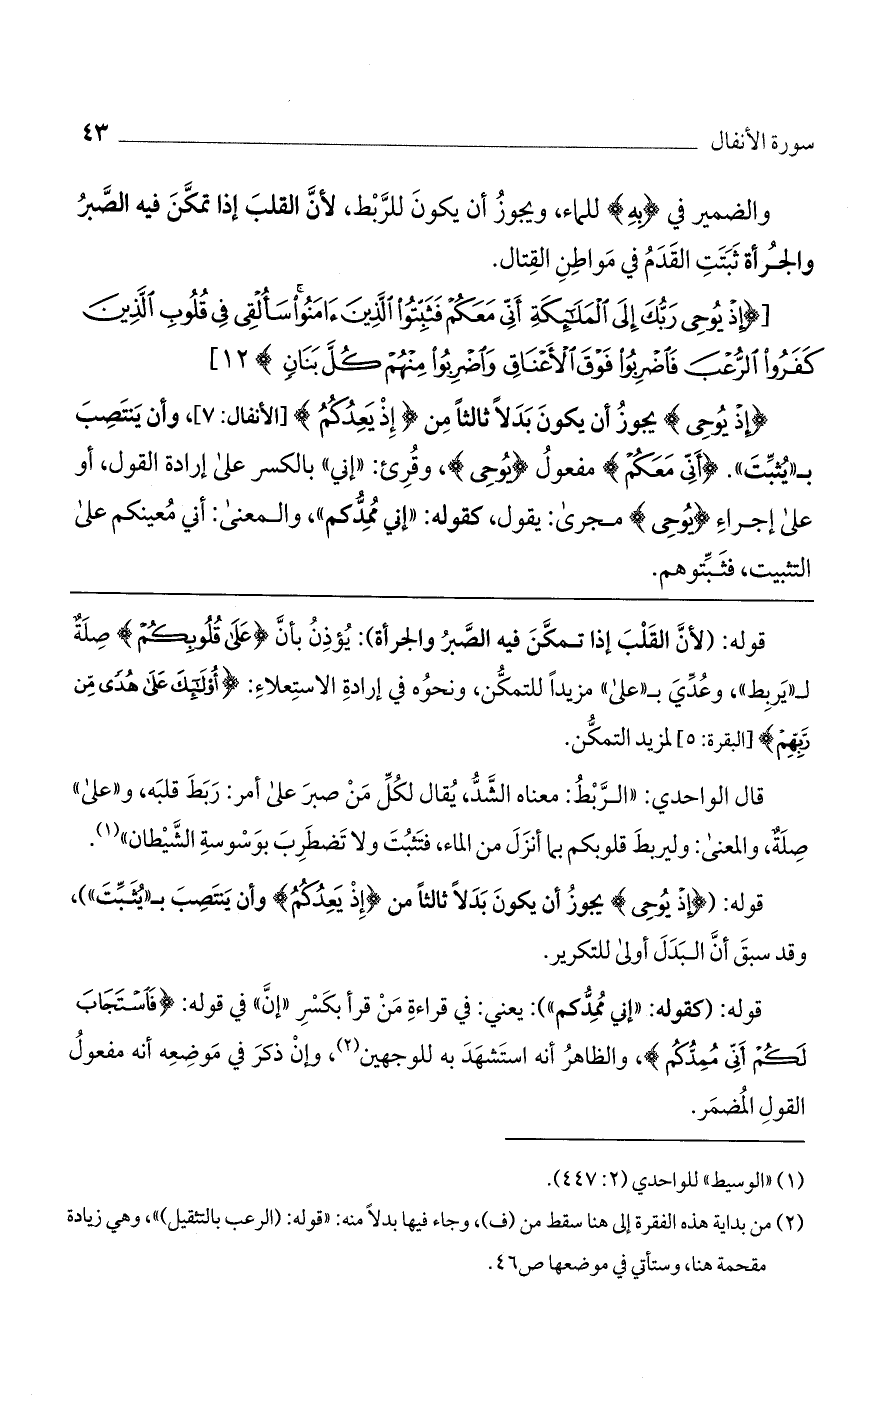 سورة الأنفال ٤٣
والضمير في ﴿بِهِ﴾ للماء، ويجوزُ أن يكونَ للرَّبْط، لأنَّ القلبَ إذا تمكَّنَ فيه الصَّبرُ
والجُرأة ثَبَتَتِ القَدَمُ في مَواطِنِ القِتال.
[﴿إِذْ يُوحِى رَبُّكَ إِلَى ٱلْمَلَٰٓئِكَةِ أَنِّى مَعَكُمْ فَثَبِّتُوا۟ ٱلَّذِينَ ءَامَنُوا۟ ۚ سَأُلْقِى فِى قُلُوبِ ٱلَّذِينَ
كَفَرُوا۟ ٱلرُّعْبَ فَٱضْرِبُوا۟ فَوْقَ ٱلْأَعْنَاقِ وَٱضْرِبُوا۟ مِنْهُمْ كُلَّ بَنَانٍ﴾ ١٢]
﴿إِذْ يُوحِى﴾ يجوزُ أن يكونَ بَدَلاً ثالثاً مِن ﴿إِذْ يَعِدُكُمُ﴾ [الأنفال: ٧]، وأن يَنتَصِبَ
بـ«يُثبِّتَ». ﴿أَنِّى مَعَكُمْ﴾ مفعولُ ﴿يُوحِى﴾، وقُرِئ: «إني» بالكسر علىٰ إرادة القول، أو
علىٰ إجراءِ ﴿يُوحِى﴾ مجرىٰ: يقول، كقوله: «إني مُمِدُّكم»، والمعنىٰ: أني مُعينكم علىٰ
التثبيت، فثَبِّتوهم.
قوله: (لأنَّ القَلْبَ إذا تمكَّنَ فيه الصَّبرُ والجرأة): يُؤذِنُ بأنَّ ﴿عَلَىٰ قُلُوبِكُمْ﴾ صِلَةٌ
لـ«يَربِط»، وعُدِّيَ بـ«علىٰ» مزيداً للتمكُّن، ونحوُه في إرادةِ الاستِعلاءِ: ﴿أُو۟لَٰٓئِكَ عَلَىٰ هُدًى مِّن
رَّبِّهِمْ﴾ [البقرة: ٥] لمزيد التمكُّن.
قال الواحدي: «الرَّبْطُ: معناه الشَّدُّ، يُقال لكُلِّ مَنْ صبرَ علىٰ أمر: رَبَطَ قلبَه، و«علىٰ»
صِلَةٌ، والمعنىٰ: وليربطَ قلوبكم بما أنزَلَ من الماء، فتَثبُتَ ولا تَضطَرِبَ بوَسْوسةِ الشَّيْطان»(١).
قوله: (﴿إِذْ يُوحِى﴾ يجوزُ أن يكونَ بَدَلاً ثالثاً من ﴿إِذْ يَعِدُكُمُ﴾ وأن يَنتَصِبَ بـ«يُثَبِّتَ»)،
وقد سبقَ أنَّ البَدَلَ أولىٰ للتكرير.
قوله: (كقوله: «إني مُمِدُّكم»): يعني: في قراءةِ مَنْ قرأ بكَسْرِ «إنَّ» في قوله: ﴿فَٱسْتَجَابَ
لَكُمْ أَنِّى مُمِدُّكُم﴾، والظاهرُ أنه استَشهَدَ به للوجهين(٢)، وإنْ ذكرَ في مَوضِعِه أنه مفعولُ
القولِ المُضمَر.
(١) «الوسيط» للواحدي (٢: ٤٤٧).
(٢) من بداية هذه الفقرة إلى هنا سقط من (ف)، وجاء فيها بدلاً منه: «قوله: (الرعب بالتثقيل)»، وهي زيادة
مقحمة هنا، وستأتي في موضعها ص٤٦.